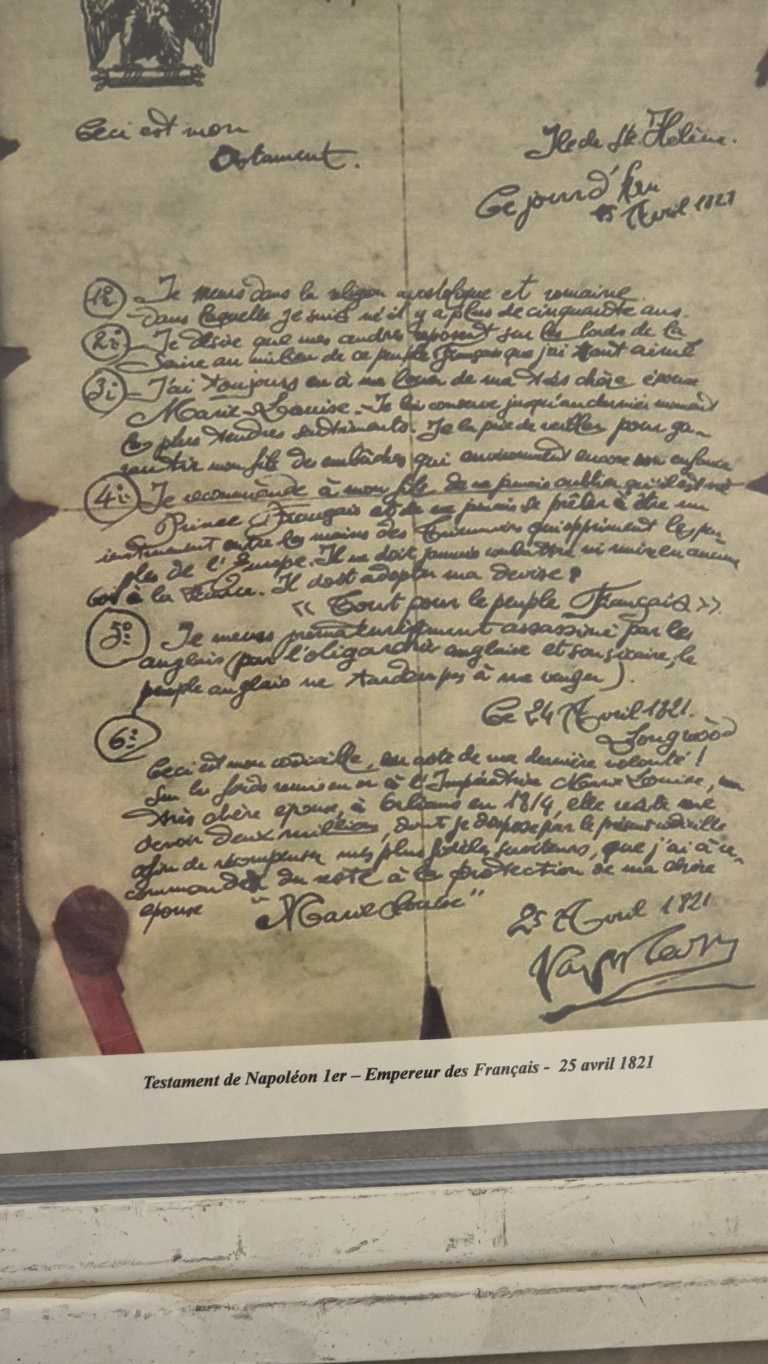 Ceci est mon
Testament.
Ile de Ste Hélène.
Ce jour d'hui
15 Avril 1821
1º Je meurs dans la religion apostolique et romaine
dans laquelle je suis né il y a plus de cinquante ans.
2º: Je désire que mes cendres reposent sur les bords de la
Seine au milieu de ce peuple français que j'ai tant aimé
3º: J'ai toujours eu à me louer de ma très chère épouse
Marie-Louise. Je lui conserve jusqu'au dernier moment
les plus tendres sentiments. Je la prie de veiller pour ga-
rantir mon fils des embûches qui environnent encore son enfance
4º: Je recommande à mon fils de ne jamais oublier qu'il est né
Prince Français et de ne jamais se prêter à être un
instrument entre les mains des qui oppriment les peu
ples de l'Europe. Il ne doit jamais ni nuire en aucune
à la France. Il doit adopter ma devise :
« Tout pour le peuple Français ».
5º: Je meurs prématurément assassiné par les
anglais (par l'oligarchie anglaise et son , le
peuple anglais ne tardera pas à me venger).
Ce 24 Avril 1821.
Longwood
6º:
Ceci est mon codicille, ou acte de ma dernière volonté !
Sur les fonds remis en or à l'Impératrice Marie Louise, ma
très chère épouse, à Orléans en 1814, elle reste me
devoir deux millions, dont je dispose par le présent codicille
afin de récompenser mes plus fidèles serviteurs, que j'ai
du reste à la protection de ma chère
épouse "Marie Louise"
25 Avril 1821
Napoléon
Testament de Napoléon 1er – Empereur des Français - 25 avril 1821